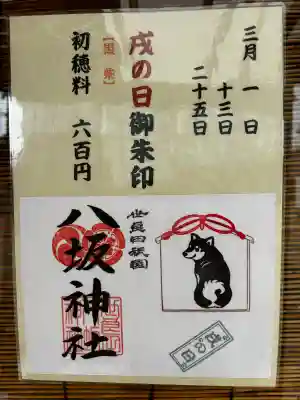 三月 一日
十三日
二十五日
戌の日御朱印
【黒柴】
初穂料 六百円
世良田祇園
八坂神社
戌の日